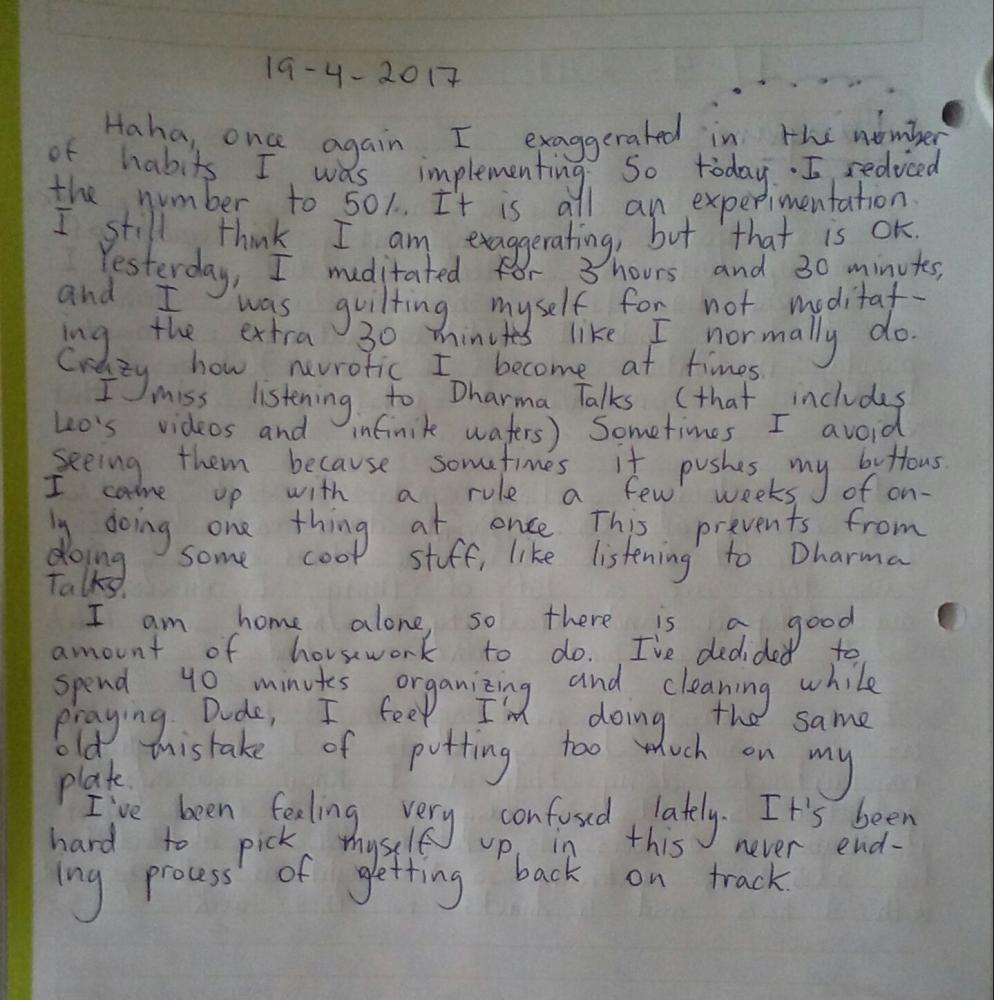 19-4-2017
Haha, once again I exaggerated in the number
of habits I was implementing. So today I reduced
the number to 50%. It is all an experimentation.
I still think I am exaggerating, but that is OK.
Yesterday, I meditated for 3 hours and 30 minutes,
and I was guilting myself for not meditat-
ing the extra 30 minutes like I normally do.
Crazy how neurotic I become at times.
I miss listening to Dharma Talks (that includes
Leo's videos and infinite waters) Sometimes I avoid
seeing them because sometimes it pushes my buttons.
I came up with a rule a few weeks of on-
ly doing one thing at once. This prevents from
doing some cool stuff, like listening to Dharma
Talks.
I am home alone, so there is a good
amount of housework to do. I've dedided to
spend 40 minutes organizing and cleaning while
praying. Dude, I feel I'm doing the same
old mistake of putting too much on my
plate.
I've been feeling very confused lately. It's been
hard to pick myself up in this never end-
ing process of getting back on track.